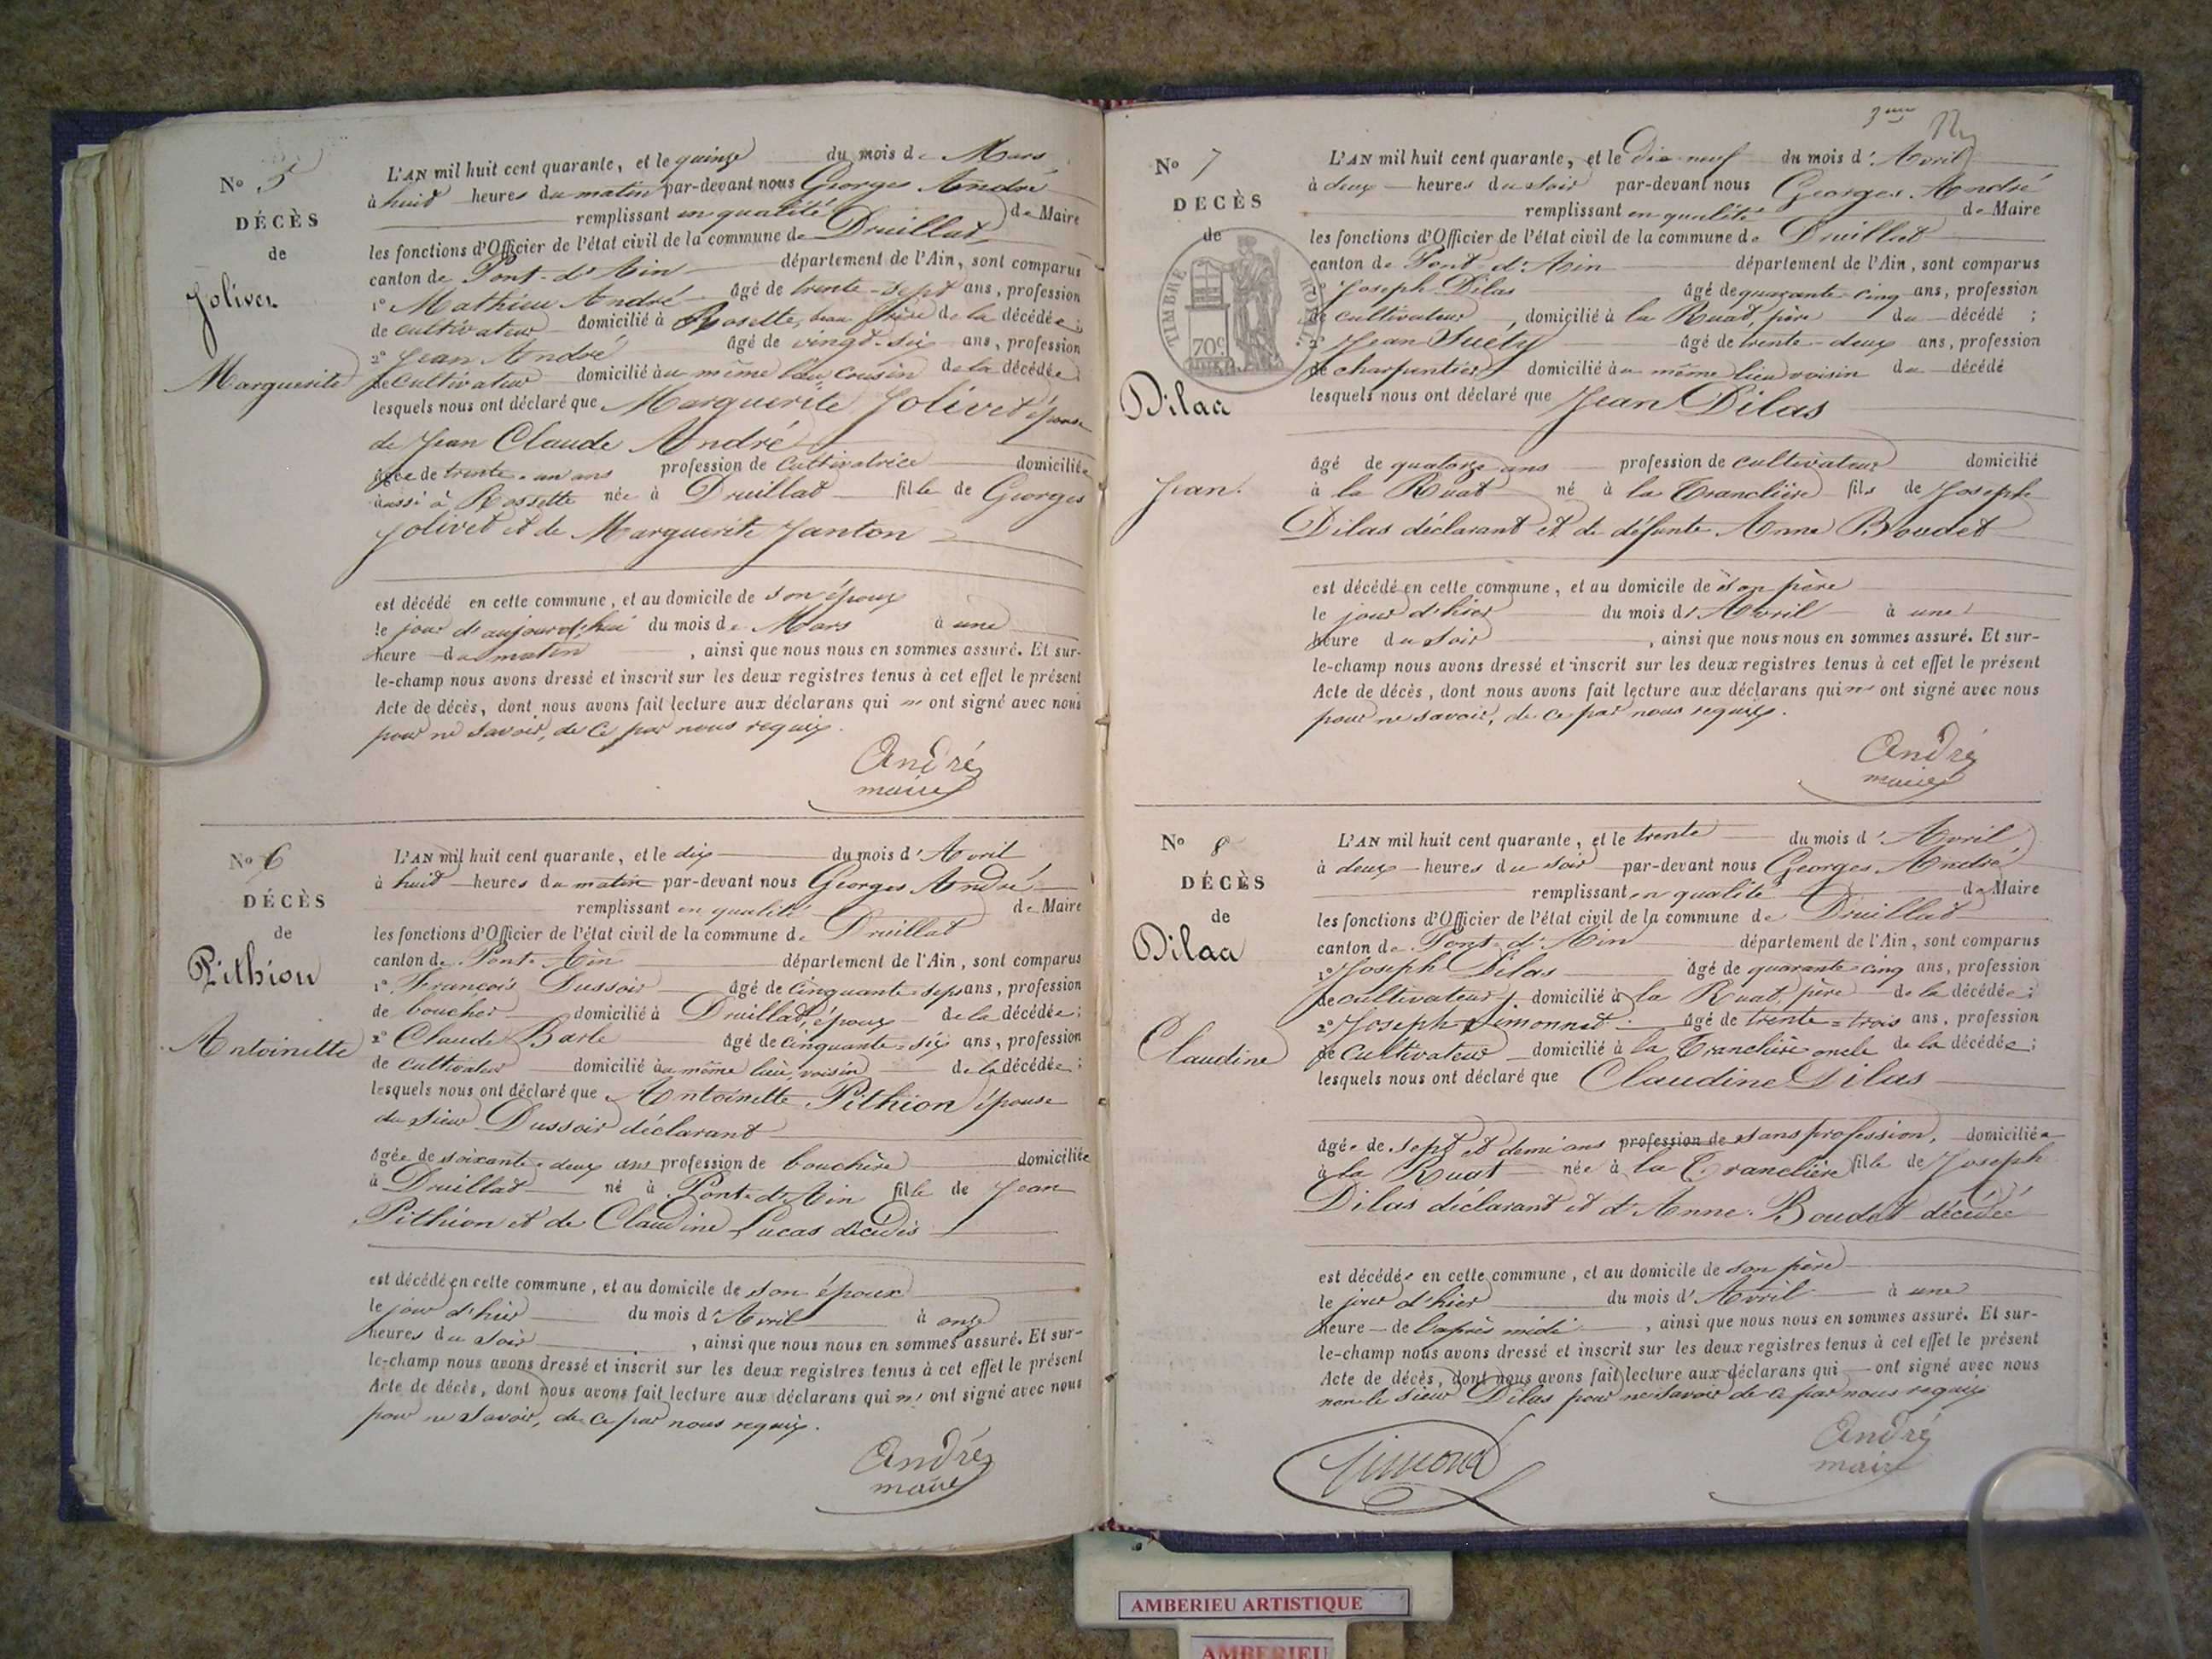 Nº 5
DÉCÈS
de
Jolivet
Marguerite
L'AN mil huit cent quarante, et le quinze du mois de Mars
à huit heures du matin par-devant nous Georges André
remplissant en qualité de Maire
les fonctions d'Officier de l'état civil de la commune de Druillat
canton de Pont-d'Ain département de l'Ain, sont comparus
1º Mathieu André âgé de trente-sept ans, profession
de cultivateur domicilié à Rosette, beau frère de la décédée;
2º Jean André âgé de vingt-six ans, profession
de cultivateur domicilié au même lieu, cousin de la décédée;
lesquels nous ont déclaré que Marguerite Jolivet épouse
de Jean Claude André
âgée de trente-un ans profession de cultivatrice domiciliée
aussi à Rossette née à Druillat fille de Georges
Jolivet et de Marguerite Janton
est décédé en cette commune, et au domicile de son époux
le jour d'aujourd'hui du mois de Mars à une
heure du matin, ainsi que nous nous en sommes assuré. Et sur-
le-champ nous avons dressé et inscrit sur les deux registres tenus à cet effet le présent
Acte de décès, dont nous avons fait lecture aux déclarans qui n' ont signé avec nous
pour ne savoir, de ce par nous requis.
André
maire
Nº 6
DÉCÈS
de
Pithion
Antoinette
L'AN mil huit cent quarante, et le dix du mois d'Avril
à huit heures du matin par-devant nous Georges André
remplissant en qualité de Maire
les fonctions d'Officier de l'état civil de la commune de Druillat
canton de Pont-Ain département de l'Ain, sont comparus
1º François Dussoir âgé de cinquante-sept ans, profession
de boucher domicilié à Druillat, époux de la décédée;
2º Claude Barle âgé de cinquante-six ans, profession
de cultivateur domicilié au même lieu, voisin de la décédée;
lesquels nous ont déclaré que Antoinette Pithion épouse
du sieur Dussoir déclarant
âgée de soixante-deux ans profession de bouchère domiciliée
à Druillat né à Pont-d'Ain fille de Jean
Pithion et de Claudine Lucas décédés
est décédé en cette commune, et au domicile de son époux
le jour d'hier du mois d'Avril à onze
heures du soir, ainsi que nous nous en sommes assuré. Et sur-
le-champ nous avons dressé et inscrit sur les deux registres tenus à cet effet le présent
Acte de décès, dont nous avons fait lecture aux déclarans qui n' ont signé avec nous
pour ne savoir, de ce par nous requis.
André
maire
3me
Nº 7
DECÈS
de
TIMBRE ROYAL
70c
Dilas
Jean.
L'AN mil huit cent quarante, et le dix neuf du mois d'Avril
à deux heures du soir par-devant nous Georges André
remplissant en qualité de Maire
les fonctions d'Officier de l'état civil de la commune de Druillat
canton de Pont-d'Ain département de l'Ain, sont comparus
1º Joseph Dilas âgé de quarante-cinq ans, profession
de cultivateur, domicilié à la Ruat, père du décédé;
2º Jean Suety âgé de trente-deux ans, profession
de charpentier, domicilié au même lieu voisin du décédé
lesquels nous ont déclaré que Jean Dilas
âgé de quatorze ans profession de cultivateur domicilié
à la Ruat né à la Tranclière fils de Joseph
Dilas déclarant et de défunte Anne Boudet
est décédé en cette commune, et au domicile de son père
le jour d'hier du mois d'Avril à une
heure du soir, ainsi que nous nous en sommes assuré. Et sur-
le-champ nous avons dressé et inscrit sur les deux registres tenus à cet effet le présent
Acte de décès, dont nous avons fait lecture aux déclarans qui n' ont signé avec nous
pour ne savoir, de ce par nous requis.
André
maire
Nº 8
DÉCÈS
de
Dilas
Claudine
L'AN mil huit cent quarante, et le trente du mois d'Avril
à deux heures du soir par-devant nous Georges André
remplissant en qualité de Maire
les fonctions d'Officier de l'état civil de la commune de Druillat
canton de Pont-d'Ain département de l'Ain, sont comparus
1º Joseph Dilas âgé de quarante cinq ans, profession
de cultivateur, domicilié à la Ruat, père de la décédée;
2º Joseph Simonnet âgé de trente-trois ans, profession
de cultivateur domicilié à la Tranclière oncle de la décédée;
lesquels nous ont déclaré que Claudine Dilas
âgée de sept et demi ans profession de sans profession, domiciliée
à la Ruat née à la Tranclière fille de Joseph
Dilas déclarant et d'Anne Boudet décédée
est décédée en cette commune, et au domicile de son père
le jour d'hier du mois d'Avril à une
heure de l'après midi, ainsi que nous nous en sommes assuré. Et sur-
le-champ nous avons dressé et inscrit sur les deux registres tenus à cet effet le présent
Acte de décès, dont nous avons fait lecture aux déclarans qui ont signé avec nous
non le sieur Dilas pour ne savoir de ce par nous requis
André
maire
AMBERIEU ARTISTIQUE
AMBERIEU